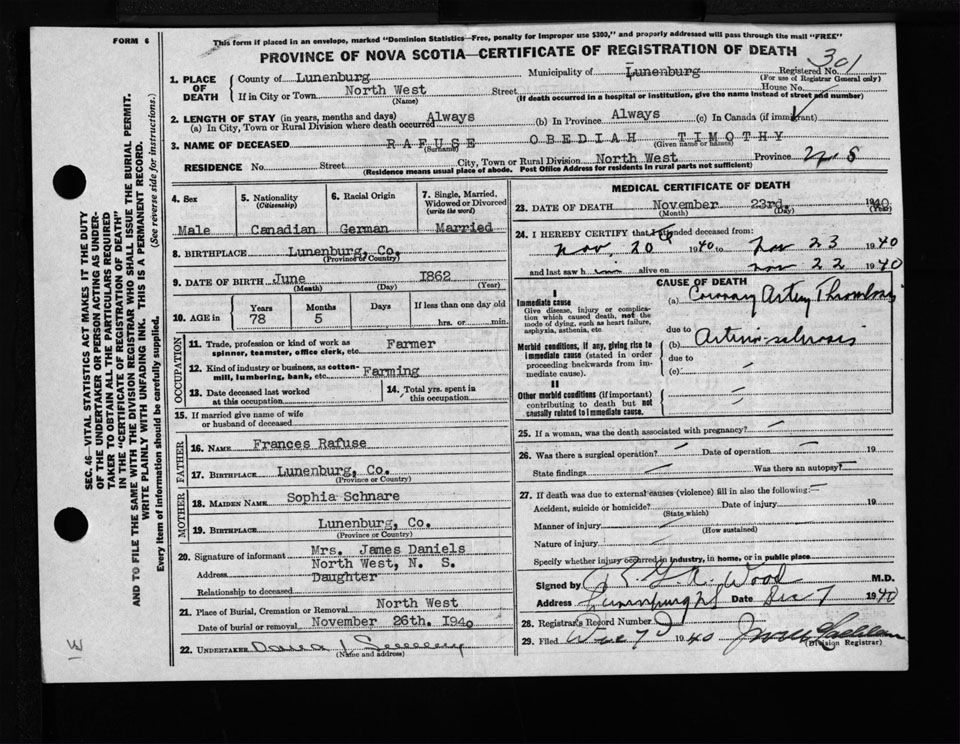 FORM 6
This form if placed in an envelope, marked "Dominion Statistics—Free, penalty for improper use $300," and properly addressed will pass through the mail "FREE"
PROVINCE OF NOVA SCOTIA—CERTIFICATE OF REGISTRATION OF DEATH
301
1. PLACE OF DEATH
County of Lunenburg Municipality of Lunenburg Registered No.
(For use of Registrar General only)
If in City or Town North West Street House No.
(Name) (If death occurred in a hospital or institution, give the name instead of street and number)
2. LENGTH OF STAY (in years, months and days)
(a) In City, Town or Rural Division where death occurred Always (b) In Province Always (c) In Canada (if immigrant)
3. NAME OF DECEASED RAFUSE OBEDIAH TIMOTHY
(Surname) (Given name or names)
RESIDENCE No. Street City, Town or Rural Division North West Province N. S
(Residence means usual place of abode. Post Office Address for residents in rural parts not sufficient)
4. Sex
Male
5. Nationality
(Citizenship)
Canadian
6. Racial Origin
German
7. Single, Married, Widowed or Divorced
(write the word)
Married
8. BIRTHPLACE Lunenburg, Co.
(Province or Country)
9. DATE OF BIRTH June 1862
(Month) (Day) (Year)
10. AGE in Years Months Days If less than one day old
78 5 hrs. or min.
OCCUPATION
11. Trade, profession or kind of work as spinner, teamster, office clerk, etc. Farmer
12. Kind of industry or business, as cotton-mill, lumbering, bank, etc. Farming
13. Date deceased last worked at this occupation
14. Total yrs. spent in this occupation
15. If married give name of wife or husband of deceased
FATHER
16. NAME Frances Rafuse
17. BIRTHPLACE Lunenburg, Co.
(Province or Country)
MOTHER
18. MAIDEN NAME Sophia Schnare
19. BIRTHPLACE Lunenburg, Co.
(Province or Country)
20. Signature of informant Mrs. James Daniels
Address North West, N. S.
Relationship to deceased Daughter
21. Place of Burial, Cremation or Removal North West
Date of burial or removal November 26th. 1940
22. UNDERTAKER
(Name and address)
MEDICAL CERTIFICATE OF DEATH
23. DATE OF DEATH November 23rd. 1940
(Month) (Day) (Year)
24. I HEREBY CERTIFY that I attended deceased from:
Nov. 20 1940 to Nov 23 1940
and last saw him alive on Nov 22 1940
CAUSE OF DEATH
I
Immediate cause
Give disease, injury or complication which caused death, not the mode of dying, such as heart failure, asphyxia, asthenia, etc.
(a) Coronary Artery Thrombosis
due to
Morbid conditions, if any, giving rise to immediate cause (stated in order proceeding backwards from immediate cause).
(b) Arterio-sclerosis
due to
(c)
II
Other morbid conditions (if important) contributing to death but not causally related to immediate cause.
25. If a woman, was the death associated with pregnancy?
26. Was there a surgical operation? Date of operation 19
State findings Was there an autopsy?
27. If death was due to external causes (violence) fill in also the following:
Accident, suicide or homicide? Date of injury 19
(State which)
Manner of injury
(How sustained)
Nature of injury
Specify whether injury occurred in industry, in home, or in public place
Signed by Wood M.D.
Address Lunenburg NS Date Dec 7 1940
28. Registrar's Record Number
29. Filed Dec 7 1940
(Division Registrar)
SEC. 46—VITAL STATISTICS ACT MAKES IT THE DUTY
OF THE UNDERTAKER OR PERSON ACTING AS UNDER-
TAKER TO OBTAIN ALL THE PARTICULARS REQUIRED
IN THE "CERTIFICATE OF REGISTRATION OF DEATH"
AND TO FILE THE SAME WITH THE DIVISION REGISTRAR WHO SHALL ISSUE THE BURIAL PERMIT.
WRITE PLAINLY WITH UNFADING INK. THIS IS A PERMANENT RECORD.
Every item of information should be carefully supplied. (See reverse side for instructions.)